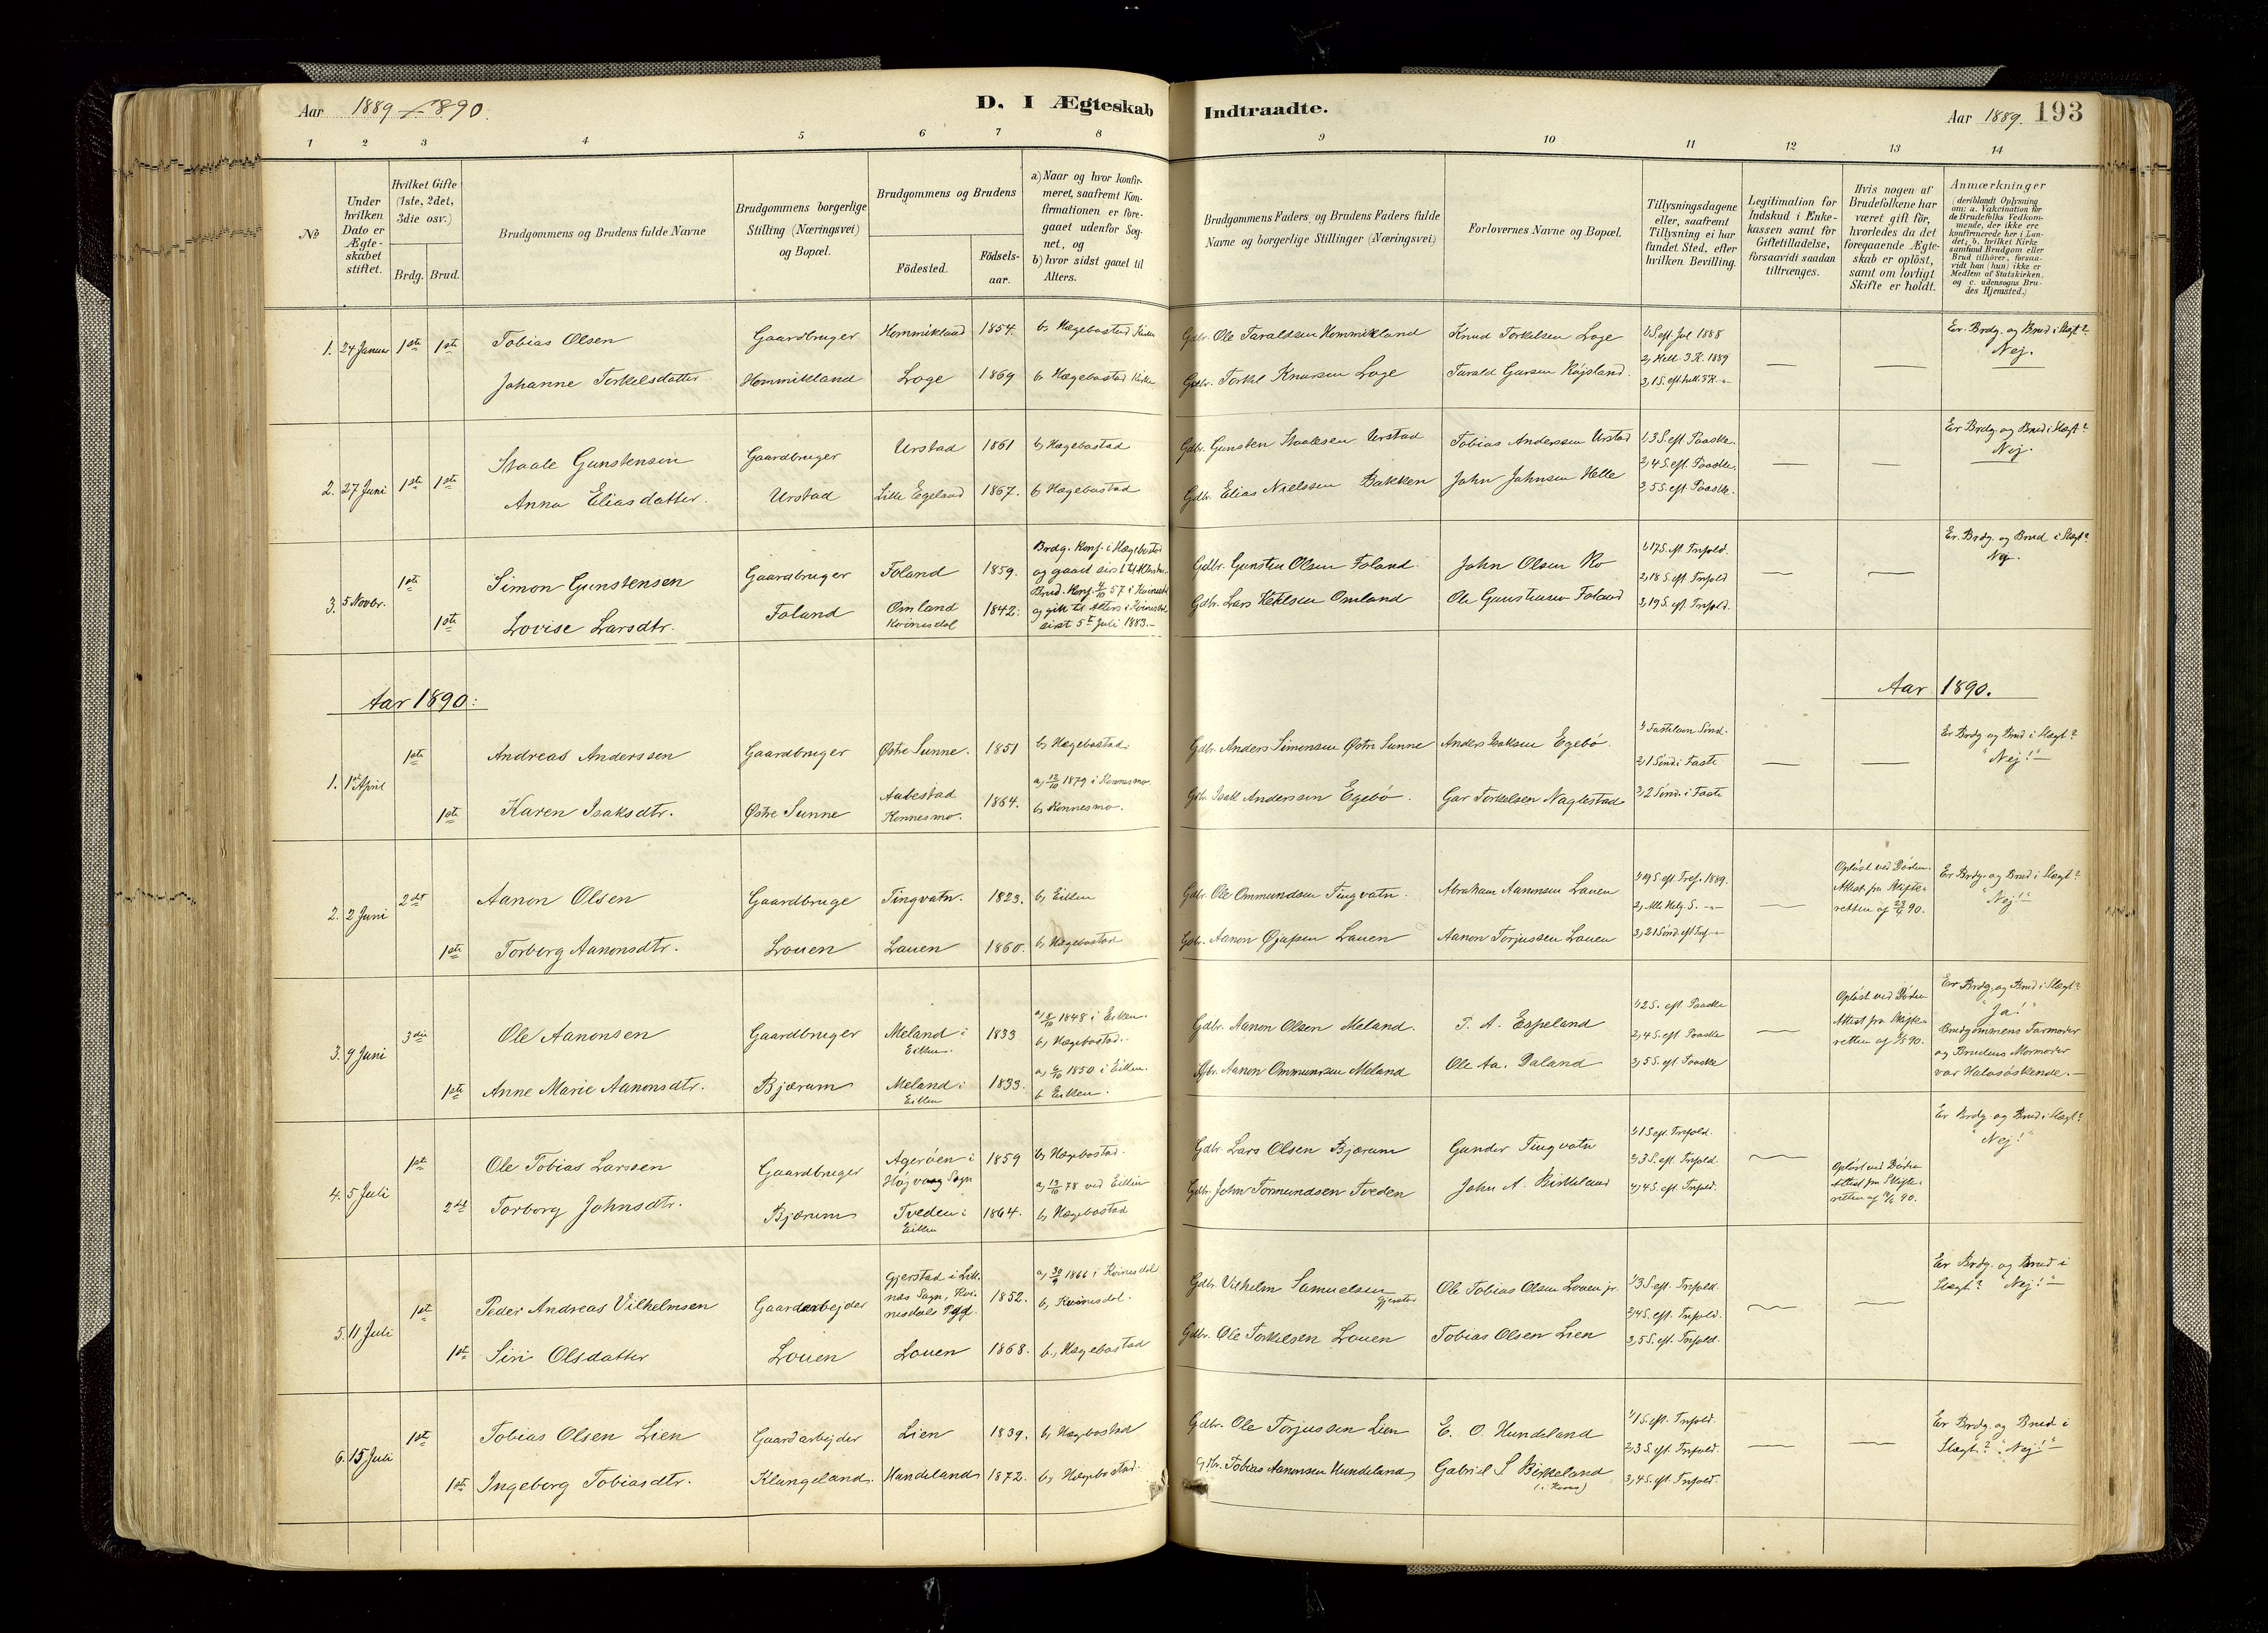 Aar 1889-1890.
D. I Ægteskab
Indtraadte.
Aar 1889. 193
1 2 3 4 5 6 7 8
9 10 11 12 13 14
№
Under hvilken Dato er Ægteskabet stiftet.
Hvilket Gifte (1ste, 2det, 3die osv.)
Brdg. Brud.
Brudgommens og Brudens fulde Navne
Brudgommens borgerlige Stilling (Næringsvei) og Bopæl.
Brudgommens og Brudens
Födested.
Födsels-aar.
a) Naar og hvor konfirmeret, saafremt Konfirmationen er foregaaet udenfor Sognet, og
b) hvor sidst gaaet til Alters.
Brudgommens Faders, og Brudens Faders fulde Navne og borgerlige Stillinger (Næringsvei)
Forlovernes Navne og Bopæl.
Tillysningsdagene eller, saafremt Tillysning ei har fundet Sted, efter hvilken Bevilling.
Legitimation for Indskud i Enkekassen samt for Giftetilladelse, forsaavidt saadan tiltrænges.
Hvis nogen af Brudefolkene har været gift för, hvorledes da det foregaaende Ægteskab er oplöst, samt om lovligt Skifte er holdt.
Anmærkninger (deriblandt Oplysning om: a. Vakcination for de Brudefolks Vedkommende, der ikke ere konfirmerede her i Landet; b. hvilket Kirkesamfund Brudgom eller Brud tilhører, forsaavidt han (hun) ikke er Medlem af Statskirken, og c. udensogns Brudes Hjemsted.)
1. 24 Januar 1ste 1ste Tobias Olsen Gaardbruger Hommikland 1854. b, Hægebostad Kirke
Johanne Torkelsdatter Hommikland Loge 1869 b, Hægebostad Kirke
Gdbr. Ole Taraldsen Hommikland Knud Torkelsen Loge 1, S. eft. Jul 1888
Er Brdg. og Brud i Slægt? Nej.
Gdbr. Torkel Knudsen Loge Tarald
2. 27 Juni 1ste 1ste Staale Gunstensen Gaardbruger Urstad 1861 b, Hægebostad
Anna Eliasdatter. Urstad Lille Egeland 1867. b, Hægebostad
Gdbr. Gunsten Staalesen Urstad Tobias Anderssen Urstad 1, 3 S. eft. Paaske
2, 4 S. eft. Paaske.
Gdbr. Elias Nielssen Bakken John Johnsen Helle 3, 5 S. eft. Paaske.
Er Brdg. og Brud i Slægt? Nej.
3. 5 Novbr. 1ste Simon Gunstensen Gaardbruger Foland 1859. Brdg. Konf. i Hægebostad
1ste Lovise Larsdtr. Foland Omland Kvinesdal 1842.
og gik til Alters i Kvinesdal sidst 5te Juli 1883.
Gdbr. Gunsten Olsen Foland. John Olsen Ro 1, 17 S. eft. Trefold.
2, 18 S. eft. Trefold
Gdbr. Lars Omland Ole Gunstensen Foland 3, 19 S. eft. Trefold.
Er Brdg. og Brud i Slægt? Nej.
Aar 1890:
Aar 1890.
1. 1st April 1ste Andreas Anderssen Gaardbruger Østre Sunne. 1851 b, Hægebostad.
1ste Karen Isaksdtr. Østre Sunne Aabestad Konnesmo. 1864. a, 12/10 1879 i Konnesmo. b, Konnesmo.
Gdbr. Anders Simonsen Østre Sunne Anders Isaksen Egebö 1, Fastelavn Sönd.
2, 1 Sönd. i Faste
Gdbr. Isak Anderssen Egebö. Torkelsen Naglestad 3, 2 Sönd. i Faste
Er Brdg. og Brud i Slægt? "Nej!"
2. 2 Juni 2det Aanon Olsen Gaardbruge Tingvatn. 1823. b, Eiken
1ste Torborg Aanonsdtr. Louen Lauen 1860. b, Hægebostad
Gdbr. Ole Ommundsen Tingvatn. Abraham Aanonsen Lauen 1, 19 S. eft. Tref. 1889.
2, Alle Helg. S.
Gdbr. Aanon Lauen Aanon Torjussen Lauen 3, 21 Sönd. eft Tref.
Oplöst ved Döden. Attest fra Skifteretten af 23/4 90.
Er Brdg. og Brud i Slægt? "Nej!"
3. 9 Juni 3die Ole Aanonsen Gaardbruger Meland i Eiken. 1833 a, 8/10 1848 i Eiken. b, Hægebostad.
1ste Anne Marie Aanonsdtr. Bjærum Meland i Eiken 1833. a, 6/10 1850 i Eiken. b Eiken.
Gdbr. Aanon Olsen Meland. T. A. Espeland 1, 2 S. eft. Paaske
2, 4 S. eft Paaske
Gdbr. Aanon Ommundsen Meland Ole Aa. Daland 3, 5 S. eft Paaske
Oplöst ved Döden Attest fra Skifteretten af 90.
Er Brdg. og Brud i Slægt? "Ja!" Brudgommens Farmoder og Brudens Mormoder var Halvsöskende.
4. 5 Juli 1ste Ole Tobias Larssen Gaardbruger Ageröen i Højvaag Sogn 1859 b, Hægebostad.
2det Torborg Johnsdtr. Bjærum Tveden i Eiken 1864. a, 13/10 78 ved Eiken b, Hægebostad
Gdbr. Lars Olsen Bjærum Gunder Tingvatn 1, 1 S. eft. Trefold.
3 S. eft. Trefold.
Gdbr. John Tormundsen Tveden John A. Birkeland 4 S. eft. Trefold.
Oplöst ved Döden Attest fra Skifteretten af 90.
Er Brdg. og Brud i Slægt? "Nej!"
5. 11 Juli 1ste Peder Andreas Vilhelmsen Gaardarbejder Gjerstad i Liknes Sogn, Kvinesdals Pgd. 1852. a, 30/9 1866 i Kvinesdal b, Kvinesdal.
1ste Siri Olsdatter Louen Louen 1868. b, Hægebostad
Gdbr. Vilhelm Samuelsen Gjerstad Ole Tobias Olsen Louen jr. 1, 3 S. eft. Trefold.
2, 4 S. eft. Trefold.
Gdbr. Ole Torkelsen Louen Tobias Olsen Lien 3, 5 S. eft. Trefold.
Er Brdg. og Brud i Slægt? "Nej!"
6. 15 Juli 1ste Tobias Olsen Lien Gaardarbejder Lien 1839. b, Hægebostad
1ste Ingeborg Tobiasdtr. Klungeland. Hundeland 1872. b, Hægebostad.
Gdbr. Ole Torjussen Lien E. O. Hundeland 1, 1 S. eft. Trefold.
2, 3 S. eft. Trefold.
Gdbr. Tobias Aanonsen Hundeland Gabriel S Birkeland 3, 4 S. eft. Trefold.
Er Brdg. og Brud i Slægt? "Nej!"